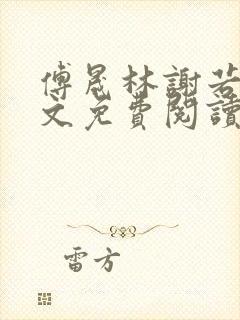 傅晟林謝若
文免費閱讀
雷方